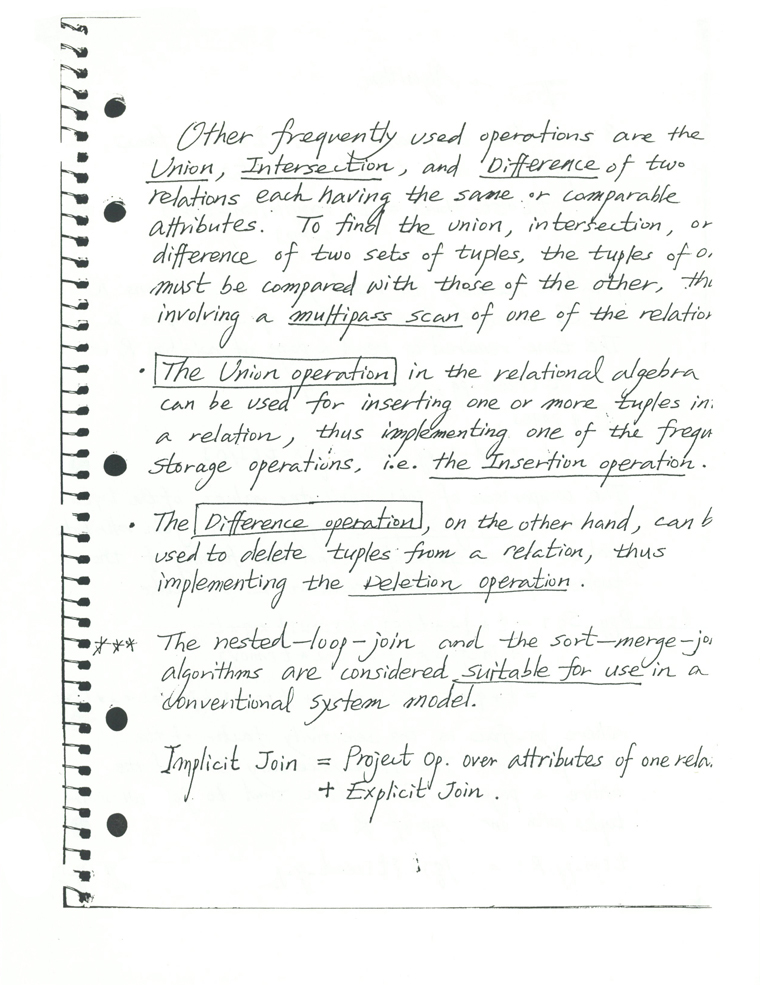 Other frequently used operations are the
Union, Intersection, and Difference of two
relations each having the same or comparable
attributes. To find the union, intersection, or
difference of two sets of tuples, the tuples of
must be compared with those of the other,
involving a multipass scan of one of the
• The Union operation in the relational algebra
can be used for inserting one or more tuples
a relation, thus implementing one of the
storage operations, i.e. the Insertion operation.
• The Difference operation, on the other hand, can
used to delete tuples from a relation, thus
implementing the Deletion operation.
*** The nested-loop-join and the sort-merge-
algorithms are considered suitable for use in a
conventional system model.
Implicit Join = Project Op. over attributes of one
+ Explicit Join.